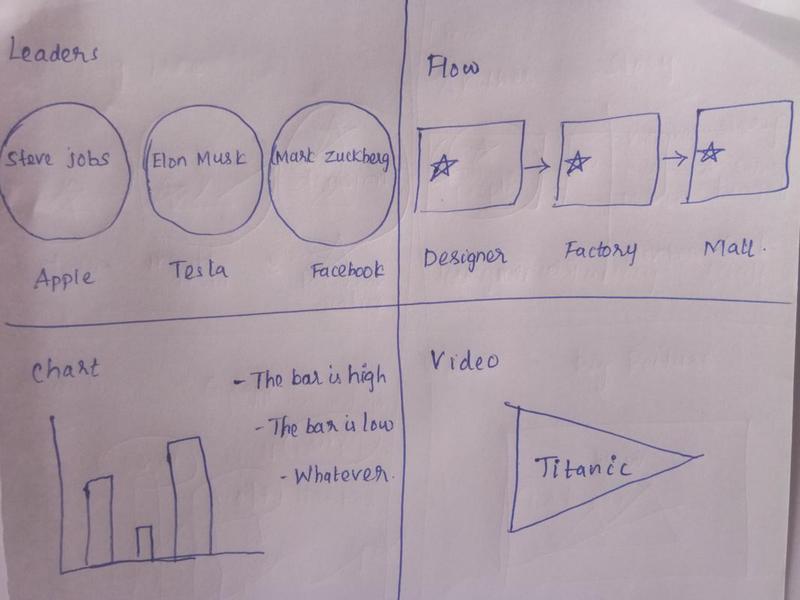 Leaders
Steve jobs
Elon Musk
Mark Zuckberg
Apple
Tesla
Facebook
Flow
Designer
Factory
Mall.
Chart
- The bar is high
- The bar is low
- Whatever.
Video
Titanic